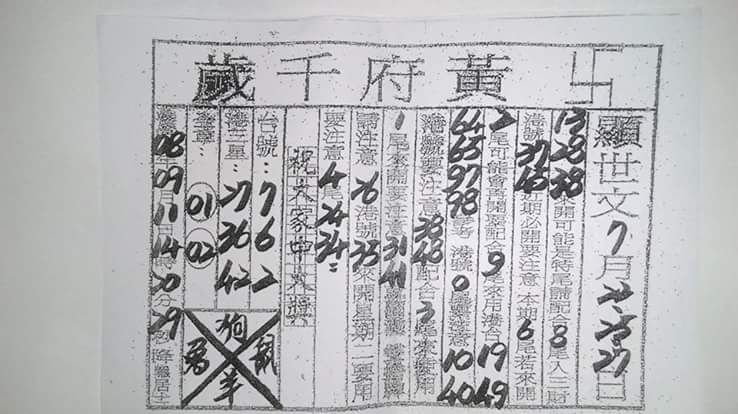 黃府千歲
顯世文7月 27日
13 28 38來開可能是特尾請配合8尾入三財
港號 37 45近期必開要注意 本期6尾若來開
2尾可能會 開請配合9尾來用港合19 49
64 65 97 98 港號0尾要注意10 40
港號要注意38 48配合3尾來使用
1尾來開要注意31 41
請注意26港號35來開星期二要用
要注意4尾24 34
祝大家中大獎
台號:7 6 2
港三星:27 36 42
01 02
08 09月11日14時20分29秒 居士
狗
鼠
羊